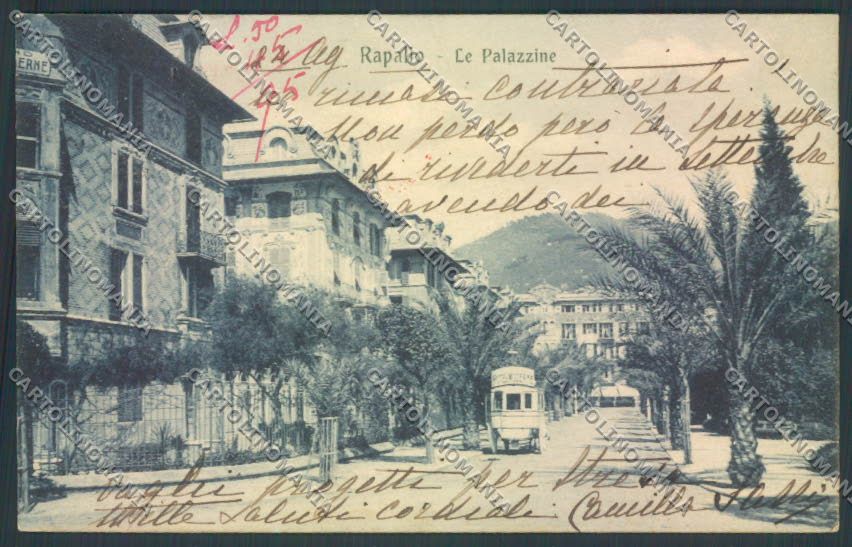 Rapallo - Le Palazzine
22 Ag
rimasi contrariata.
Non perdo però la speranza
di rivederti in settembre
avendo dei
progetti per Stresa
Mille saluti cordiali Camilla
L. 50
CARTOLINOMANIA